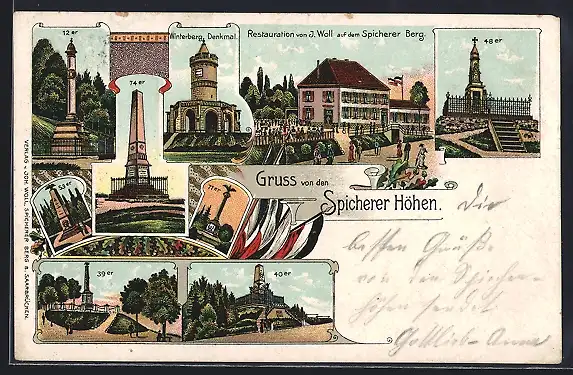 12er
74er
Winterberg Denkmal.
Restauration von J. Woll auf dem Spicherer Berg.
48er
53er
77er
Gruss von den
Spicherer Höhen.
39er
40er
VERLAG v. JOH. WOLL, SPICHERER BERG B. SAARBRÜCKEN.
Die
besten Grüße
von den Spicherer
höhen sendet
Gottlieb-Anna